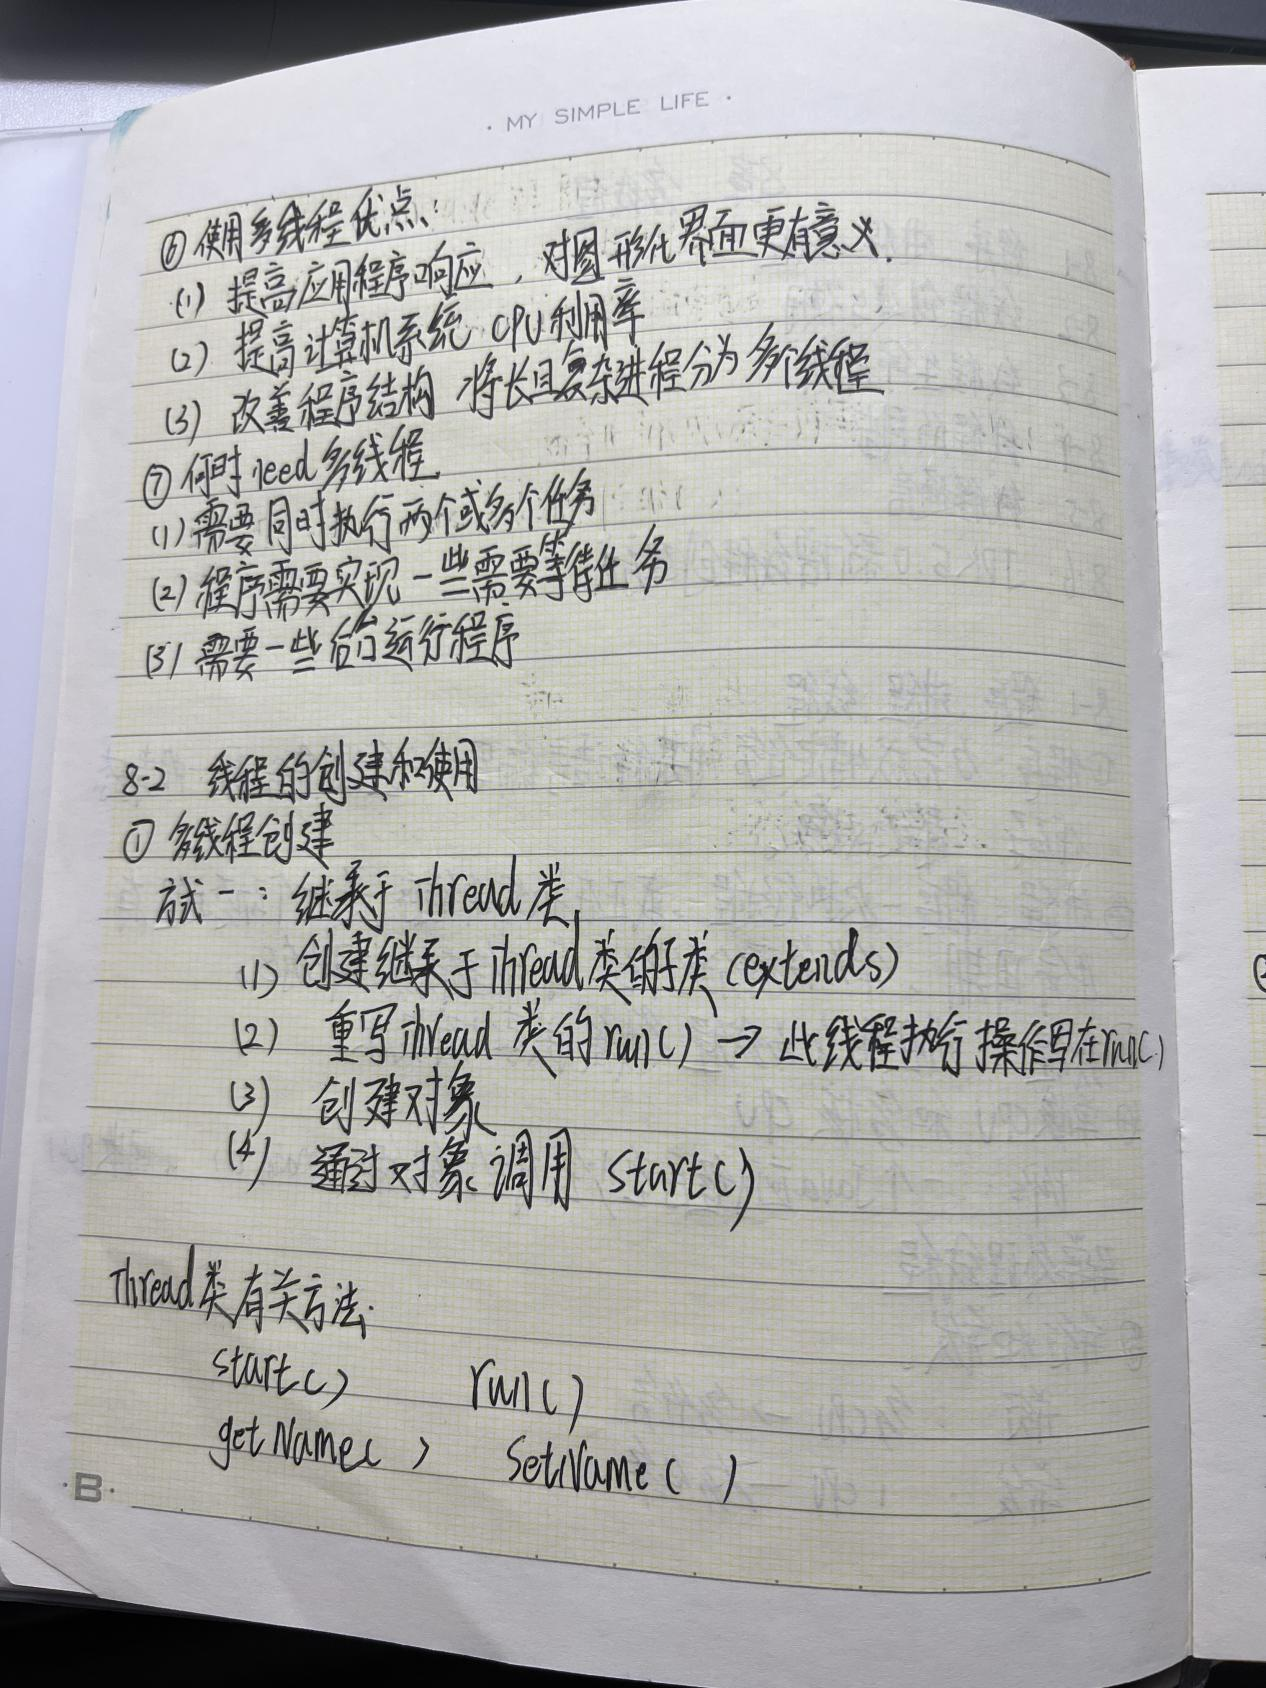 · MY SIMPLE LIFE ·
⑥ 使用多线程优点:
(1) 提高应用程序响应，对图形化界面更有意义.
(2) 提高计算机系统 CPU利用率
(3) 改善程序结构 将长且复杂进程分为多个线程
⑦ 何时need多线程.
(1) 需要同时执行两个或多个任务
(2) 程序需要实现一些需要等待任务
(3) 需要一些后台运行程序
8-2 线程的创建和使用
① 多线程创建
方式一: 继承于Thread类
(1) 创建继承于Thread类的子类 (extends)
(2) 重写Thread类的run() → 此线程执行操作写在run()
(3) 创建对象
(4) 通过对象调用 start()
Thread类有关方法.
start() run()
getName( ) setName( )
· B ·